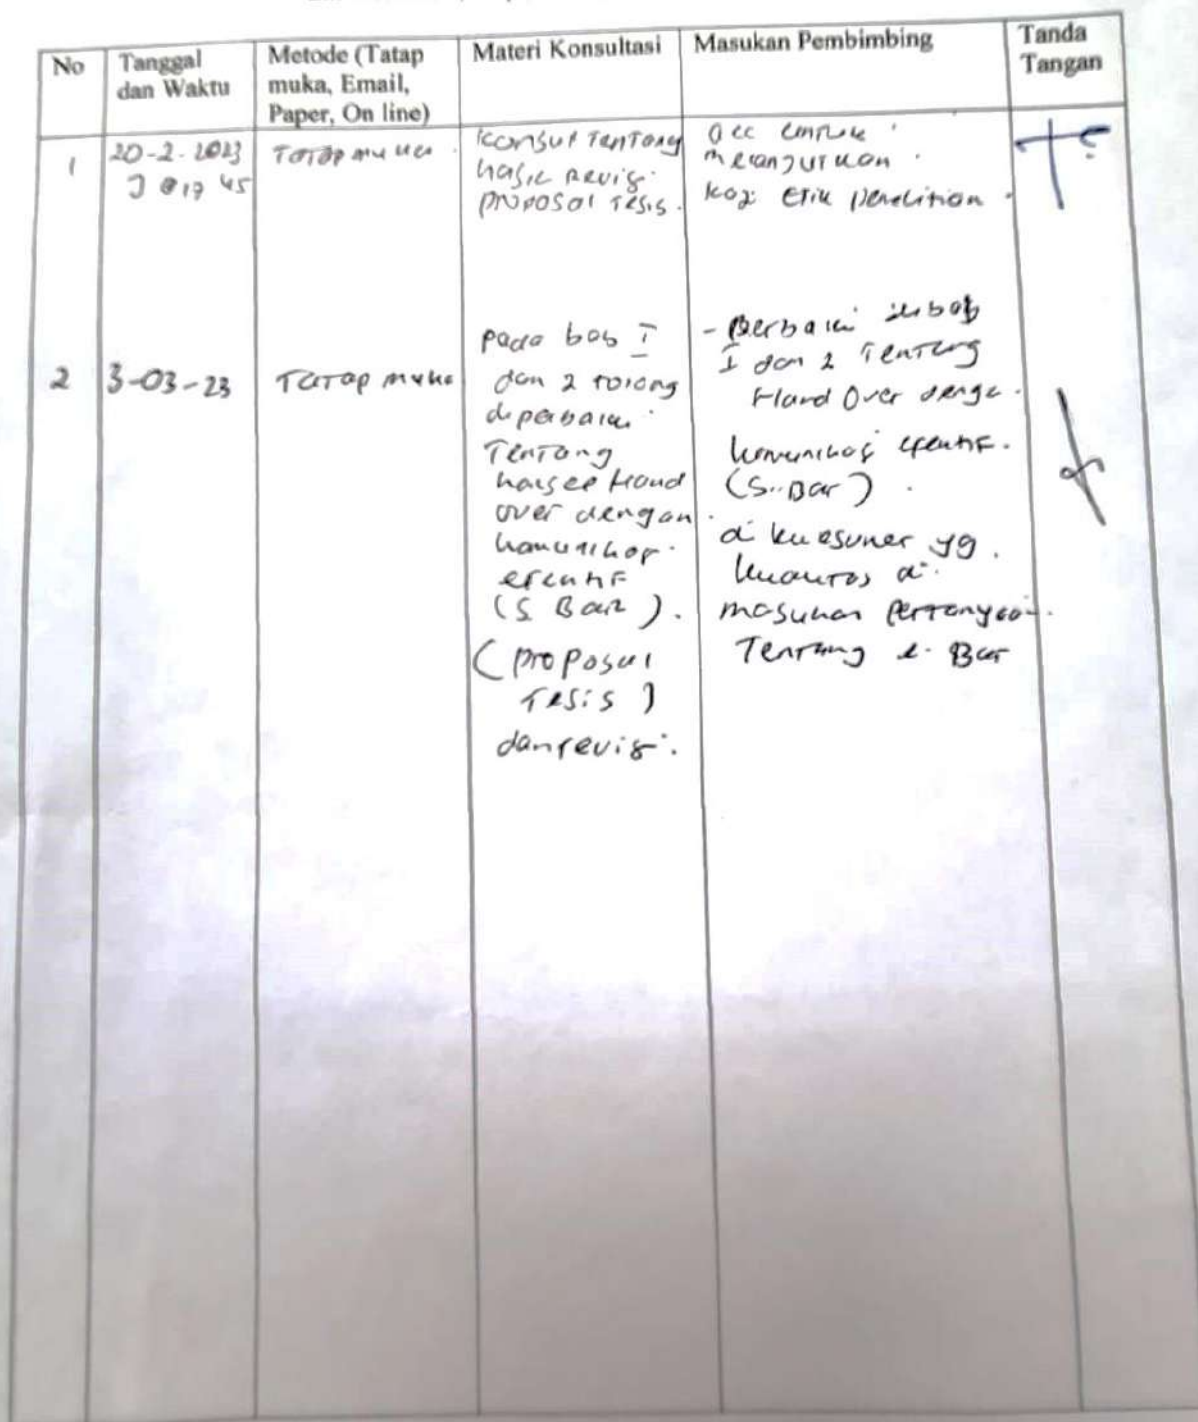 No
Tanggal
dan Waktu
Metode (Tatap
muka, Email,
Paper, On line)
Materi Konsultasi
Masukan Pembimbing
Tanda
Tangan
1
20-2-2023
45
Tatap muka
Konsul Tentang
hasil revisi
proposal Tesis.
acc untuk
melanjutkan
kaji etik penelitian
2
3-03-23
Tatap muka
pada bab I
dan 2 tolong
diperbaiki
Tentang
Hand
over dengan
komunikasi
efektif
(S Bar).
(proposal
Tesis)
dan revisi.
- Perbaiki bab
I dan 2 Tentang
Hand Over
komunikasi efektif.
(S..Bar).
di kuesuner yg.
masukan pertanyaan
Tentang S. Bar